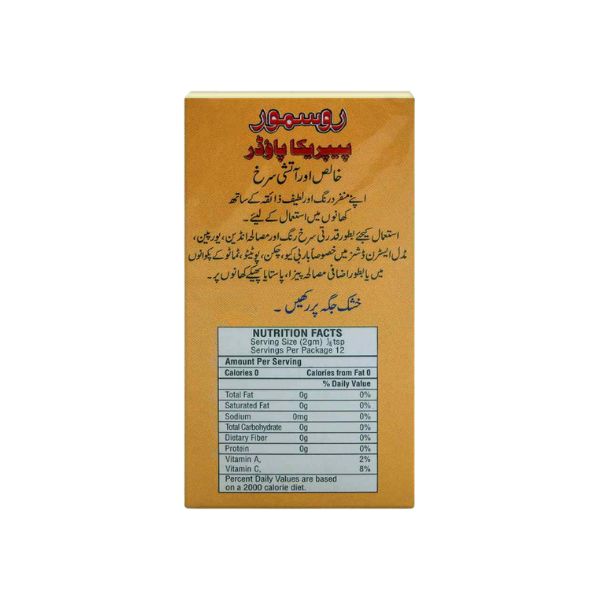 روسمور
پیپریکا پاؤڈر
خالص اور آتشی سرخ
اپنے منفرد رنگ اور لطیف ذائقہ کے ساتھ
کھانوں میں استعمال کے لیئے۔
استعمال کیجئے بطور قدرتی سرخ رنگ اور مصالحہ انڈین، یورپین،
مڈل ایسٹرن ڈشنز میں خصوصاً باربی کیو، چکن، پوٹیٹو، ٹماٹو کے پکوانوں
میں یا بطور اضافی مصالحہ پیزا، پاستا یا پھیکے کھانوں پر۔
خشک جگہ پر رکھیں۔
NUTRITION FACTS
Serving Size (2gm) tsp
Servings Per Package 12
Amount Per Serving
Calories 0 Calories from Fat 0
% Daily Value
Total Fat 0g 0%
Saturated Fat 0g 0%
Sodium 0mg 0%
Total Carbohydrate 0g 0%
Dietary Fiber 0g 0%
Protein 0g 0%
Vitamin A, 2%
Vitamin C, 8%
Percent Daily Values are based
on a 2000 calorie diet.